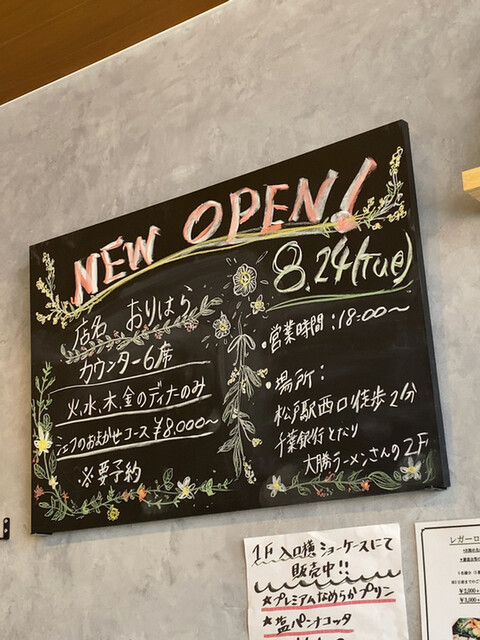 NEW OPEN!
8.24(Tue)
店名 おりはら
カウンター6席
火、水、木、金のディナーのみ
シェフのおまかせコース ¥8,000〜
※要予約
・営業時間：18:00〜
・場所：
松戸駅西口徒歩2分
千葉銀行となり
大勝ラーメンさんの2F
1F 入口横 ショーケースにて
販売中!!
★プレミアムなめらかプリン
★塩パンナコッタ
レガーロ
¥2,000+
¥3,000+